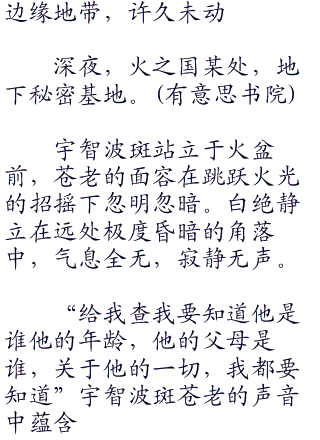 边缘地带，许久未动
深夜，火之国某处，地
下秘密基地。(有意思书院)
宇智波斑站立于火盆
前，苍老的面容在跳跃火光
的招摇下忽明忽暗。白绝静
立在远处极度昏暗的角落
中，气息全无，寂静无声。
“给我查我要知道他是
谁他的年龄，他的父母是
谁，关于他的一切，我都要
知道”宇智波斑苍老的声音
中蕴含